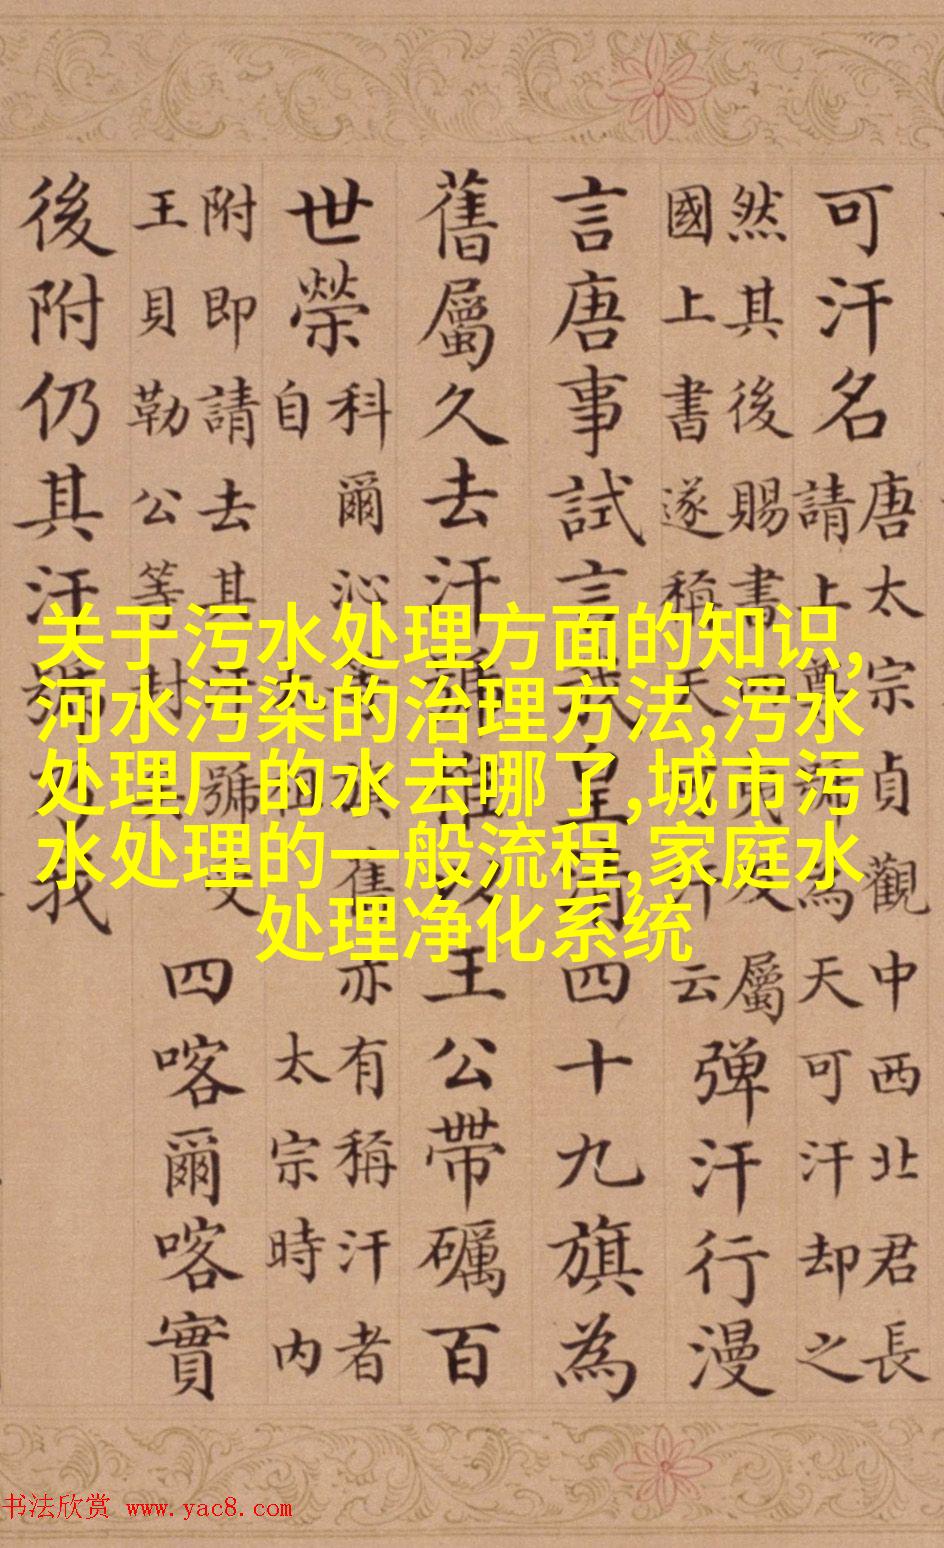 可汗名
唐太宗貞觀中西北君長
請上尊號為天可汗却之
然其後賜書及屬
國上書遂稱天云
弹汗行漫
言唐事試言我皇四十九旗為
舊屬久去汗號王公帶礪百
世榮
科爾沁舊亦有稱汗者
自太宗時內
附即請去其汗號受
王貝勒公等封
四喀爾喀實
後附仍其汗號我
关于污水处理方面的知识,
河水污染的治理方法,污水
处理厂的水去哪了,城市污
水处理的一般流程,家庭水
处理净化系统
书法欣赏 www.yac8.com